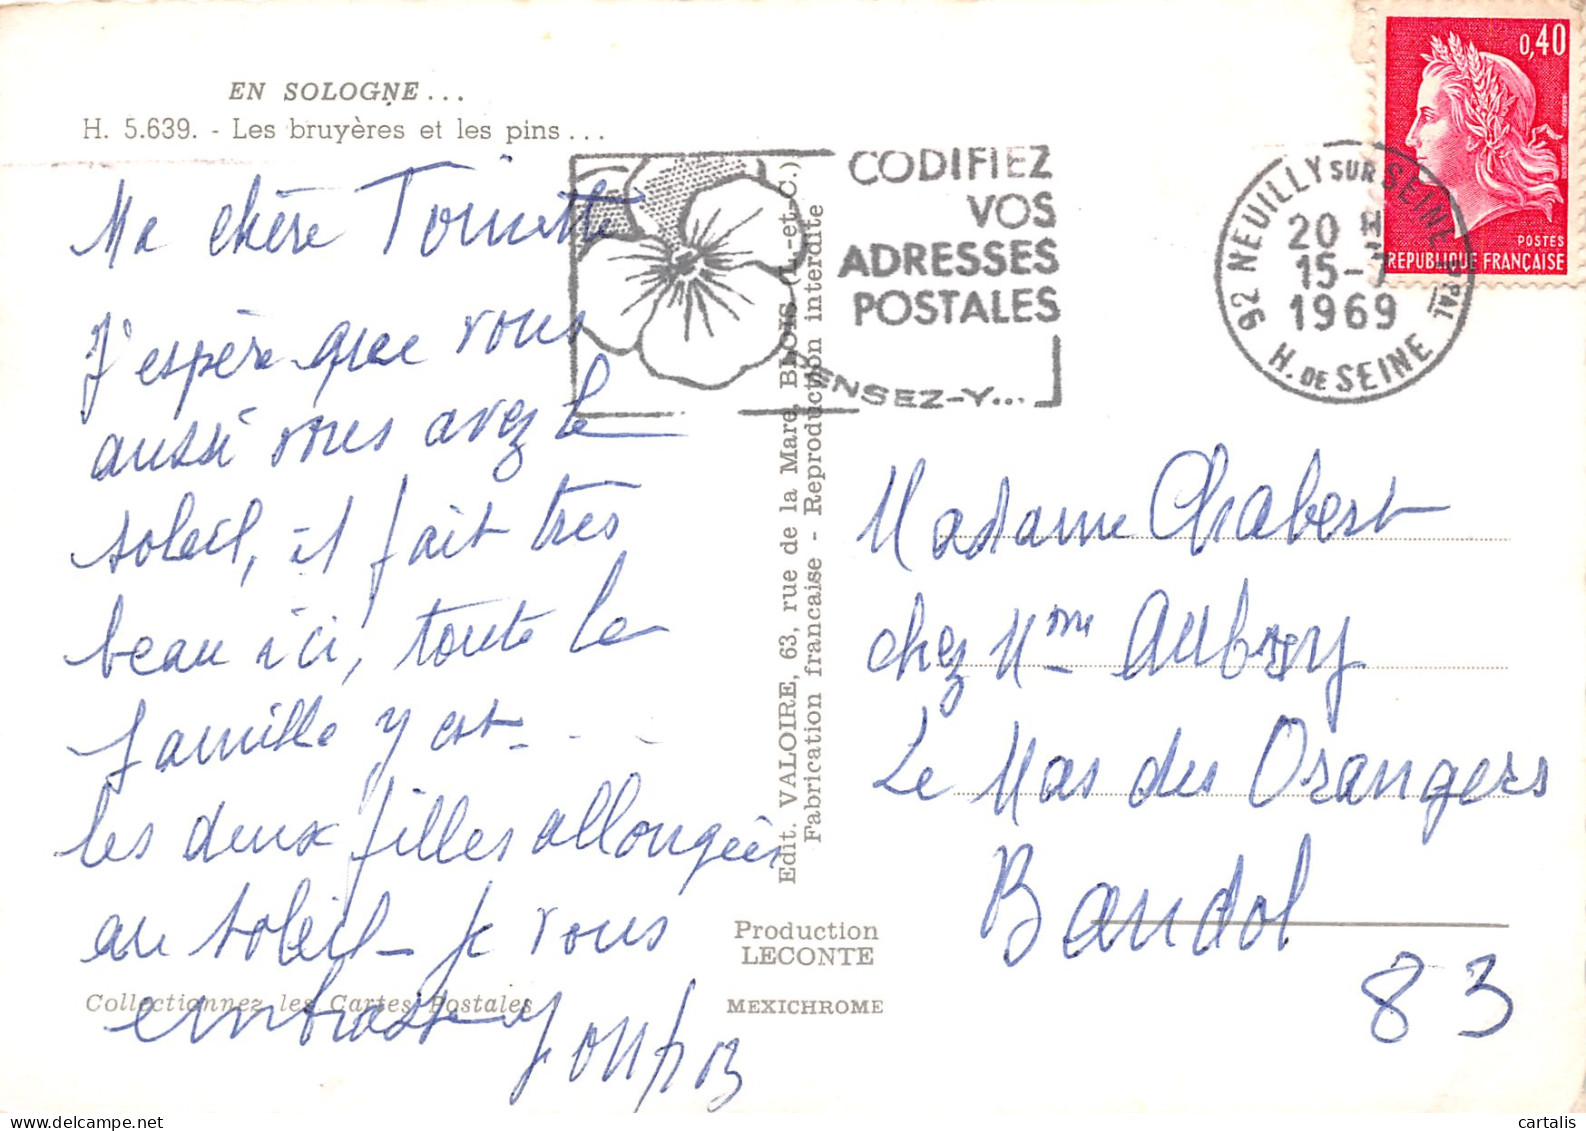 EN SOLOGNE...
H. 5.639. - Les bruyères et les pins...
Ma chère Toinette
J'espère que vous
aussi vous avez le
soleil, il fait très
beau ici, toute la
famille y est - . .
les deux filles allongées
au soleil - Je vous
embrasse
Collectionnez les Cartes Postales
Edit. VALOIRE, 63, rue de la Mare, BLOIS (L.-et-C.)
Fabrication francaise - Reproduction interdite
Production
LECONTE
MEXICHROME
CODIFIEZ
VOS
ADRESSES
POSTALES
PENSEZ-Y...
92 NEUILLY SUR SEINE PPAL
20 H
15-7
1969
H. DE SEINE
0,40
POSTES
REPUBLIQUE FRANÇAISE
Madame Chabert
chez Mme Aubry
Le Mas des Orangers
Bandol
83
cartalis
www.delcampe.net